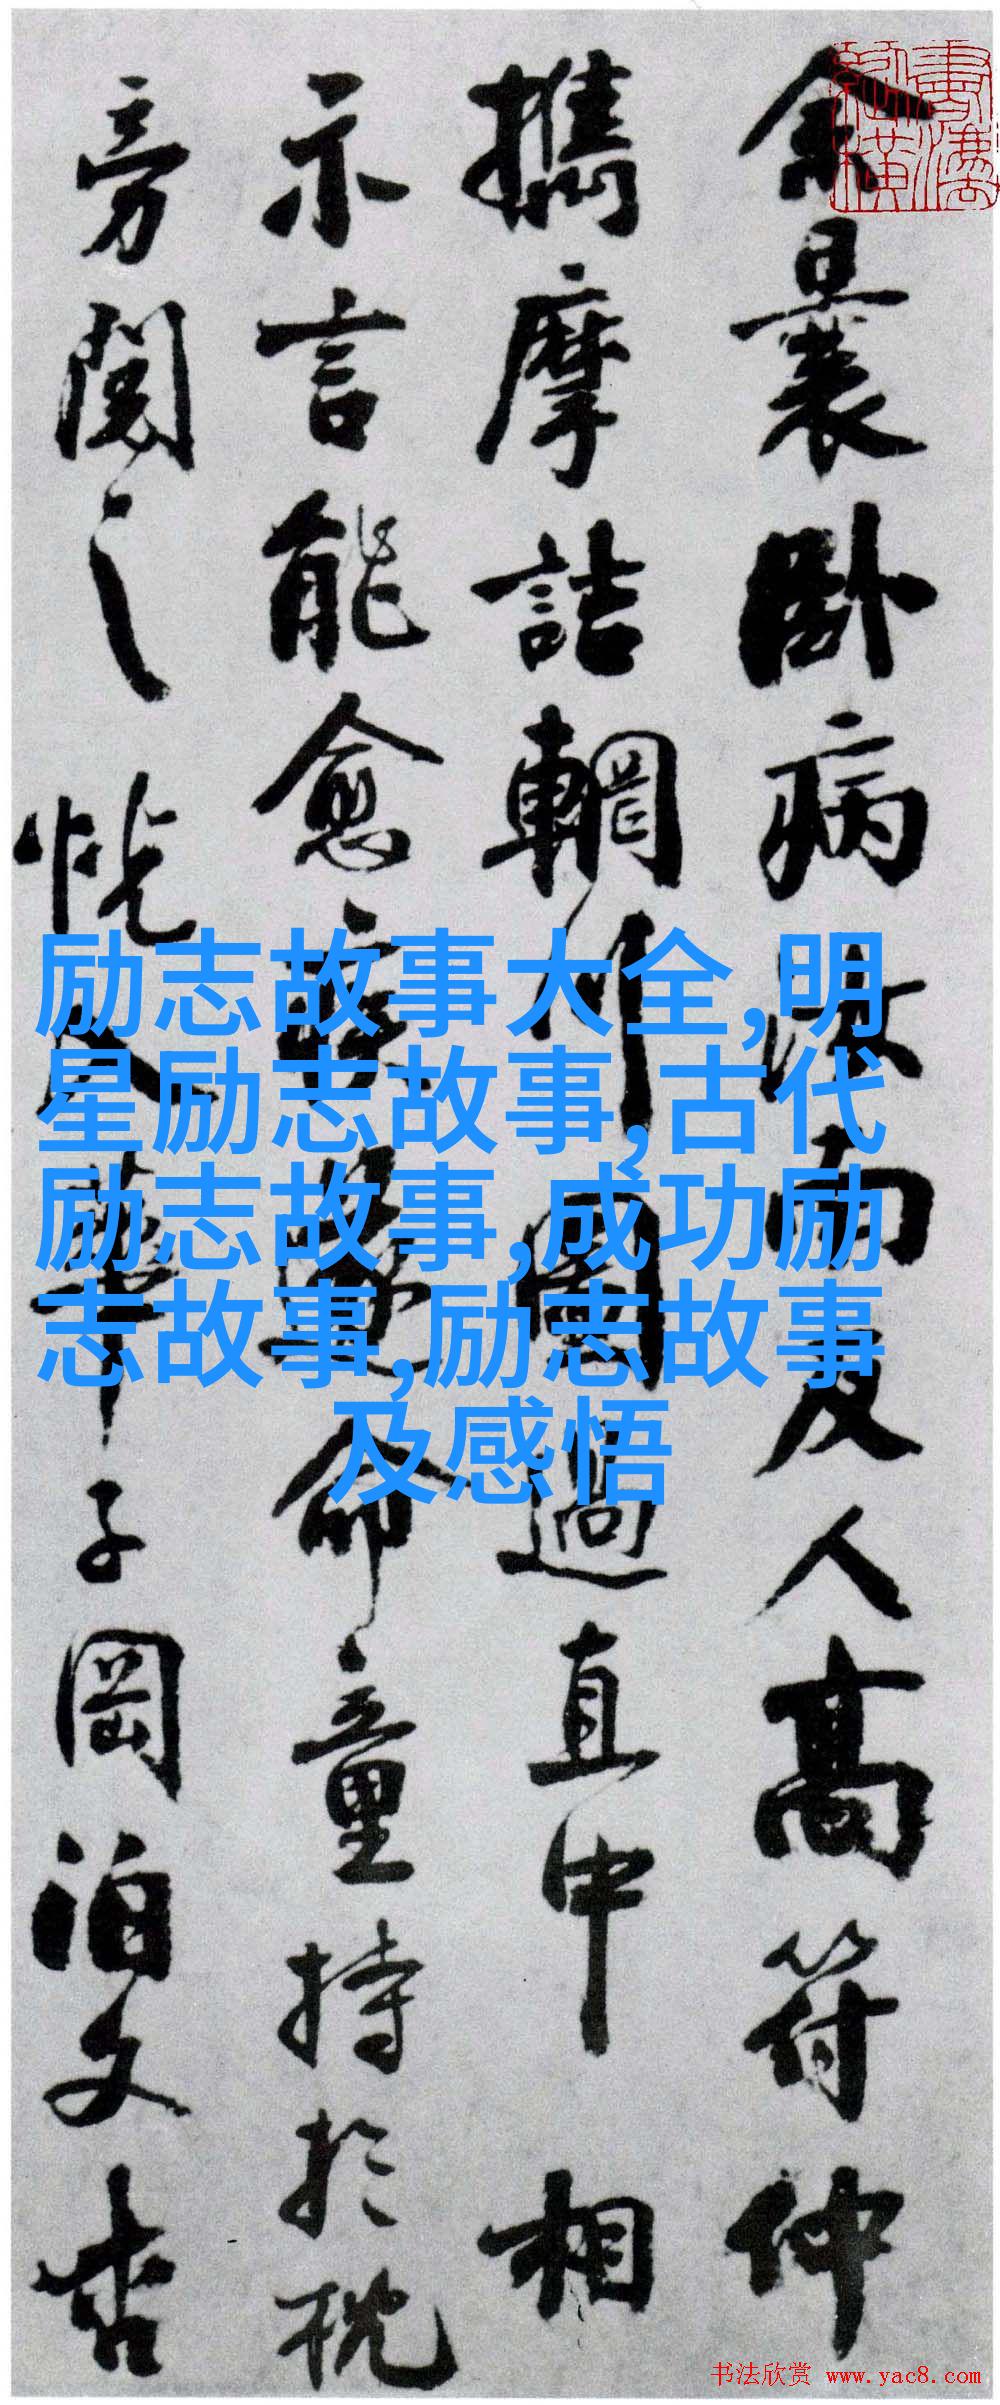 余曩臥病汝南友人高符仲
攜摩詰輞川圖過直中相
示言能愈疾遂命童持於枕
旁閱之恍入華子岡泊文杏
励志故事大全,明
星励志故事,古代
励志故事,成功励
志故事,励志故事
及感悟
书法欣赏 www.yac8.com